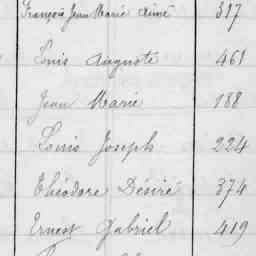 François Jean Marie Aimé 317
Louis Auguste 461
Jean Marie 188
Louis Joseph 224
Théodore Désiré 374
Ernest Gabriel 419